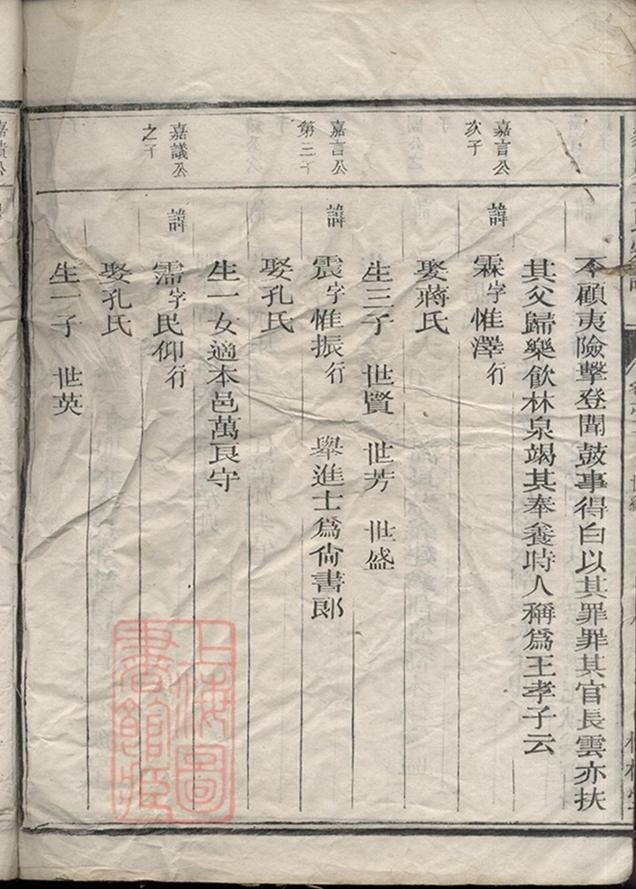 不顧夷險擊登聞鼓事得白以其罪罪其官長雲亦扶
其父歸樂飲林泉竭其奉養時人稱為王孝子云
嘉言公
次子
諱
霖字惟澤行
娶蔣氏
生三子 世賢 世芳 世盛
嘉言公
第三子
諱
震字惟振行 舉進士爲尙書郞
娶孔氏
生一女適本邑萬良守
嘉議公
之子
諱
濡字民仰行
娶孔氏
生一子 世英
上海圖
書館藏